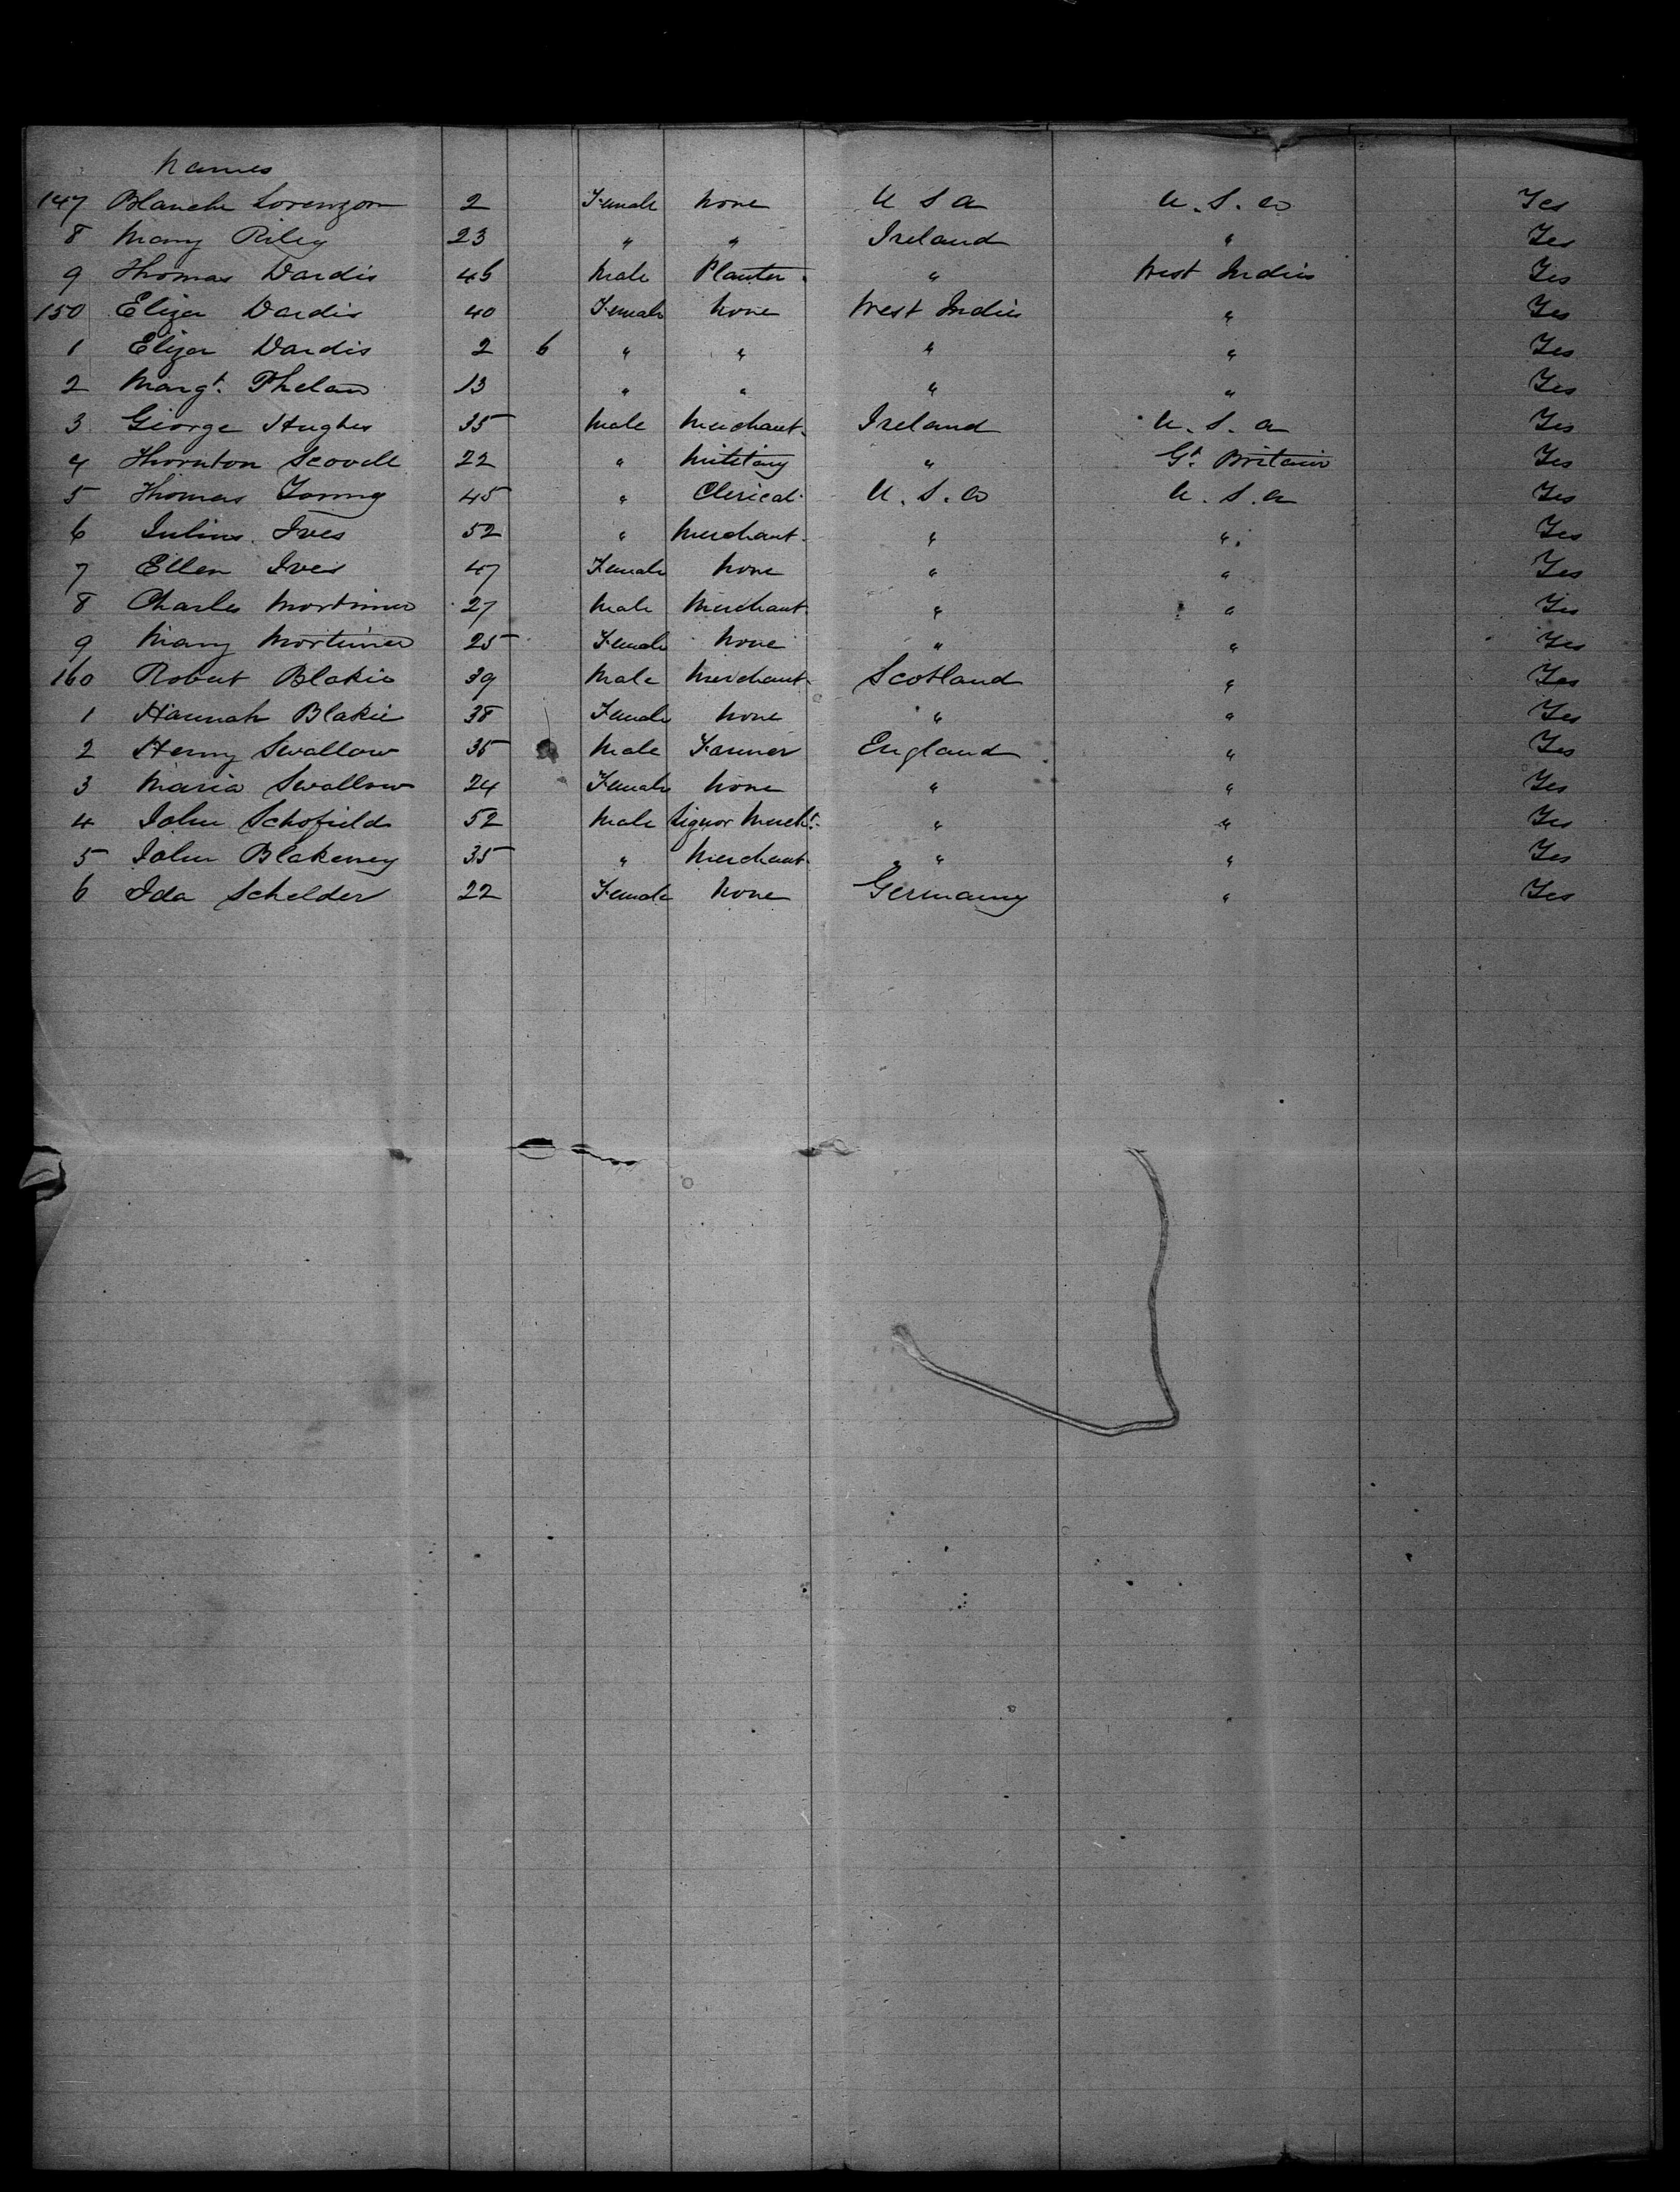 Names
147 Blanche Lorenzon 2 Female None U S A U. S. A Yes
8 Mary Riley 23 " " Ireland " Yes
9 Thomas Dardis 45 Male Planter " West Indies Yes
150 Eliza Dardis 40 Female None West Indies " Yes
1 Eliza Dardis 2 6 " " " " Yes
2 Margt. Phelan 13 " " " " Yes
3 George Hughes 35 Male Merchant Ireland U. S. A Yes
4 Thornton Scovell 22 " Military " Gt. Britain Yes
5 Thomas Young 45 " Clerical U. S. A U. S. A Yes
6 Julius Ives 52 " Merchant " " Yes
7 Ellen Ives 47 Female None " " Yes
8 Charles Mortimer 27 Male Merchant " " Yes
9 Mary Mortimer 25 Female None " " Yes
160 Robert Blakie 39 Male Merchant Scotland " Yes
1 Hannah Blakie 38 Female None " " Yes
2 Henry Swallow 35 Male Farmer England " Yes
3 Maria Swallow 24 Female None " " Yes
4 John Schofield 52 Male Liquor Mercht. " " Yes
5 John Blakeney 35 " Merchant " " Yes
6 Ida Schelder 22 Female None Germany " Yes